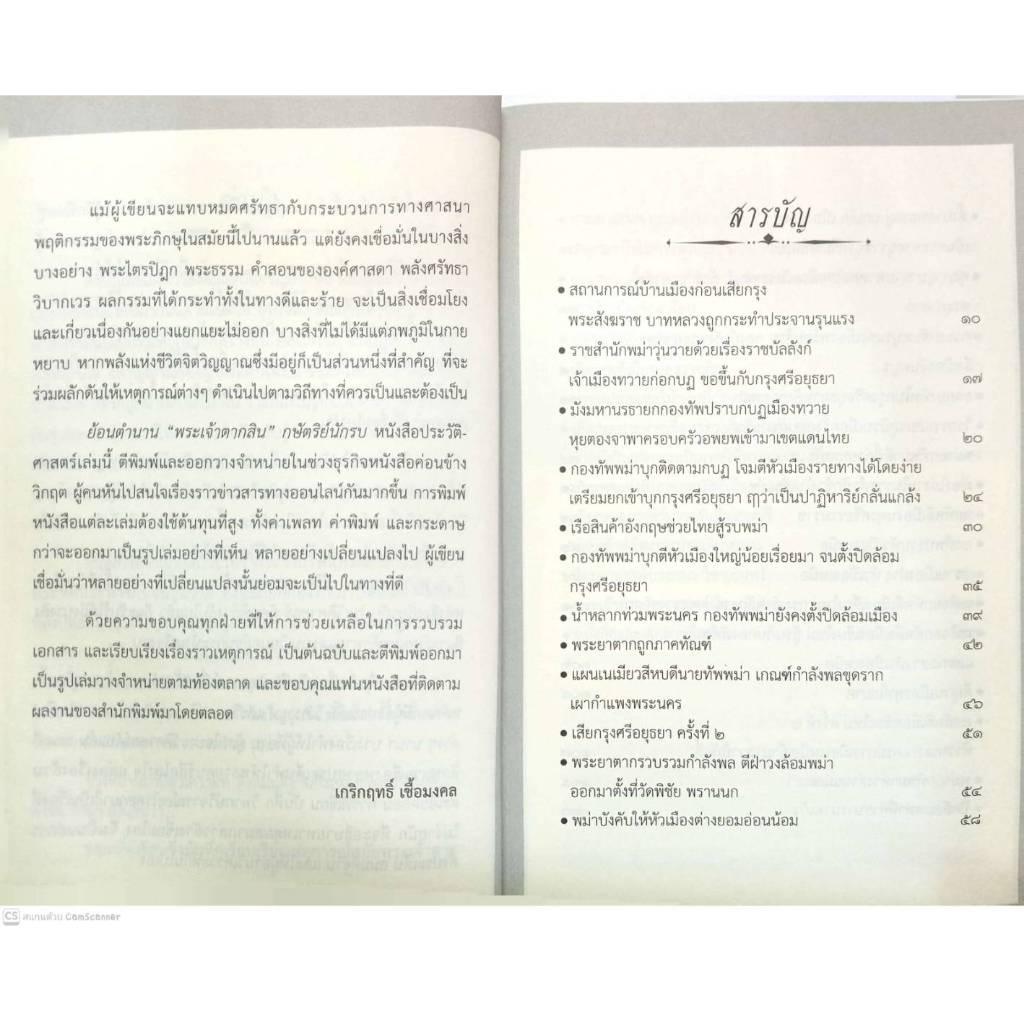 แม้ผู้เขียนจะแทบหมดศรัทธากับกระบวนการทางศาสนา
พฤติกรรมของพระภิกษุในสมัยนี้ไปนานแล้ว แต่ยังคงเชื่อมั่นในบางสิ่ง
บางอย่าง พระไตรปิฎก พระธรรม คำสอนขององค์ศาสดา พลังศรัทธา
วิบากเวร ผลกรรมที่ได้กระทำทั้งในทางดีและร้าย จะเป็นสิ่งเชื่อมโยง
และเกี่ยวเนื่องกันอย่างแยกแยะไม่ออก บางสิ่งที่ไม่ได้มีแต่ภพภูมิในกาย
หยาบ หากพลังแห่งชีวิตจิตวิญญาณซึ่งมีอยู่ก็เป็นส่วนหนึ่งที่สำคัญ ที่จะ
ร่วมผลักดันให้เหตุการณ์ต่างๆ ดำเนินไปตามวิถีทางที่ควรเป็นและต้องเป็น
ย้อนตำนาน “พระเจ้าตากสิน” กษัตริย์นักรบ หนังสือประวัติ-
ศาสตร์เล่มนี้ ตีพิมพ์และออกวางจำหน่ายในช่วงธุรกิจหนังสือค่อนข้าง
วิกฤต ผู้คนหันไปสนใจเรื่องราวข่าวสารทางออนไลน์กันมากขึ้น การพิมพ์
หนังสือแต่ละเล่มต้องใช้ต้นทุนที่สูง ทั้งค่าเพลท ค่าพิมพ์ และกระดาษ
กว่าจะออกมาเป็นรูปเล่มอย่างที่เห็น หลายอย่างเปลี่ยนแปลงไป ผู้เขียน
เชื่อมั่นว่าหลายอย่างที่เปลี่ยนแปลงนั้นย่อมจะเป็นไปในทางที่ดี
ด้วยความขอบคุณทุกฝ่ายที่ให้การช่วยเหลือในการรวบรวม
เอกสาร และเรียบเรียงเรื่องราวเหตุการณ์ เป็นต้นฉบับและตีพิมพ์ออกมา
เป็นรูปเล่มวางจำหน่ายตามท้องตลาด และขอบคุณแฟนหนังสือที่ติดตาม
ผลงานของสำนักพิมพ์มาโดยตลอด
เกริกฤทธิ์ เชื้อมงคล
สารบัญ
● สถานการณ์บ้านเมืองก่อนเสียกรุง
พระสังฆราช บาทหลวงถูกกระทำประจานรุนแรง ๑๐
● ราชสำนักพม่าวุ่นวายด้วยเรื่องราชบัลลังก์
เจ้าเมืองทวายก่อกบฏ ขอขึ้นกับกรุงศรีอยุธยา ๑๗
● มังมหานรธายกกองทัพปราบกบฏเมืองทวาย
หุยตองจาพาครอบครัวอพยพเข้ามาเขตแดนไทย ๒๐
● กองทัพพม่าบุกติดตามกบฏ โจมตีหัวเมืองรายทางได้โดยง่าย
เตรียมยกเข้าบุกกรุงศรีอยุธยา ฤาว่าเป็นปาฏิหาริย์กลั่นแกล้ง ๒๔
● เรือสินค้าอังกฤษช่วยไทยสู้รบพม่า ๓๐
● กองทัพพม่าบุกตีหัวเมืองใหญ่น้อยเรื่อยมา จนตั้งปิดล้อม
กรุงศรีอยุธยา ๓๕
● น้ำหลากท่วมพระนคร กองทัพพม่ายังคงตั้งปิดล้อมเมือง ๓๙
● พระยาตากถูกภาคทัณฑ์ ๔๒
● แผนเนเมียวสีหบดีนายทัพพม่า เกณฑ์กำลังพลขุดราก
เผากำแพงพระนคร ๔๖
● เสียกรุงศรีอยุธยา ครั้งที่ ๒ ๕๑
● พระยาตากรวบรวมกำลังพล ตีฝ่าวงล้อมพม่า
ออกมาตั้งที่วัดพิชัย พรานนก ๕๔
● พม่าบังคับให้หัวเมืองต่างยอมอ่อนน้อม ๕๘
CS สแกนด้วย CamScanner